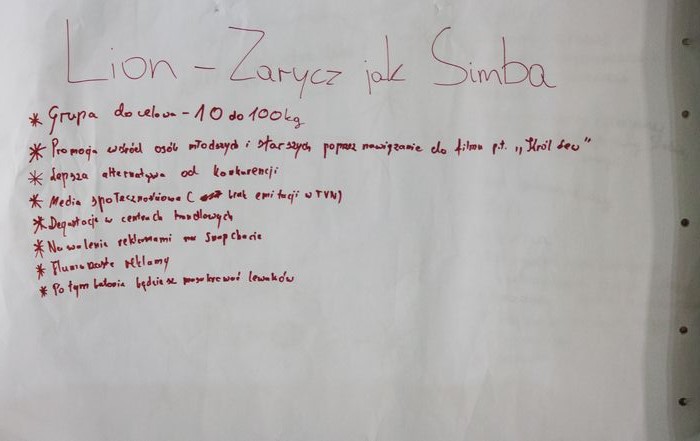 Lion - Zarycz jak Simba
* Grupa docelowa - 10 do 100kg
* Promocja wśród osób młodszych i starszych poprzez nawiązanie do filmu p.t. ,,Król Lew"
* Lepsza alternatywa od konkurencji
* Media społecznościowe ( brak emitacji w TVN)
* Degustacje w centrach handlowych
* Nawalenie reklamami na Snapchacie
* reklamy
* Po tym batonie będziesz lewaków